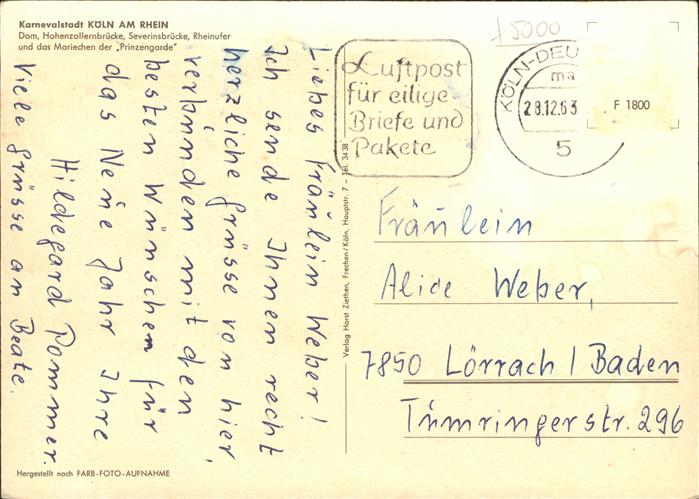 Karnevalstadt KÖLN AM RHEIN
Dom, Hohenzollernbrücke, Severinsbrücke, Rheinufer
und das Mariechen der „Prinzengarde"
Liebes Fräulein Weber!
Ich sende Ihnen recht
herzliche Grüsse von hier,
verbunden mit den
besten Wünschen für
das Neue Jahr Ihre
Hildegard Pommer.
Viele Grüsse an Beate.
Hergestellt nach FARB-FOTO-AUFNAHME
Verlag Horst Ziethen, Frechen/Köln, Hauptstr. 7 – Tel. 3438
Luftpost
für eilige
Briefe und
Pakete
5000
KÖLN-DEU
ma
28.12.63
5
F 1800
Fräulein
Alice Weber,
7850 Lörrach / Baden
Tumringerstr. 296